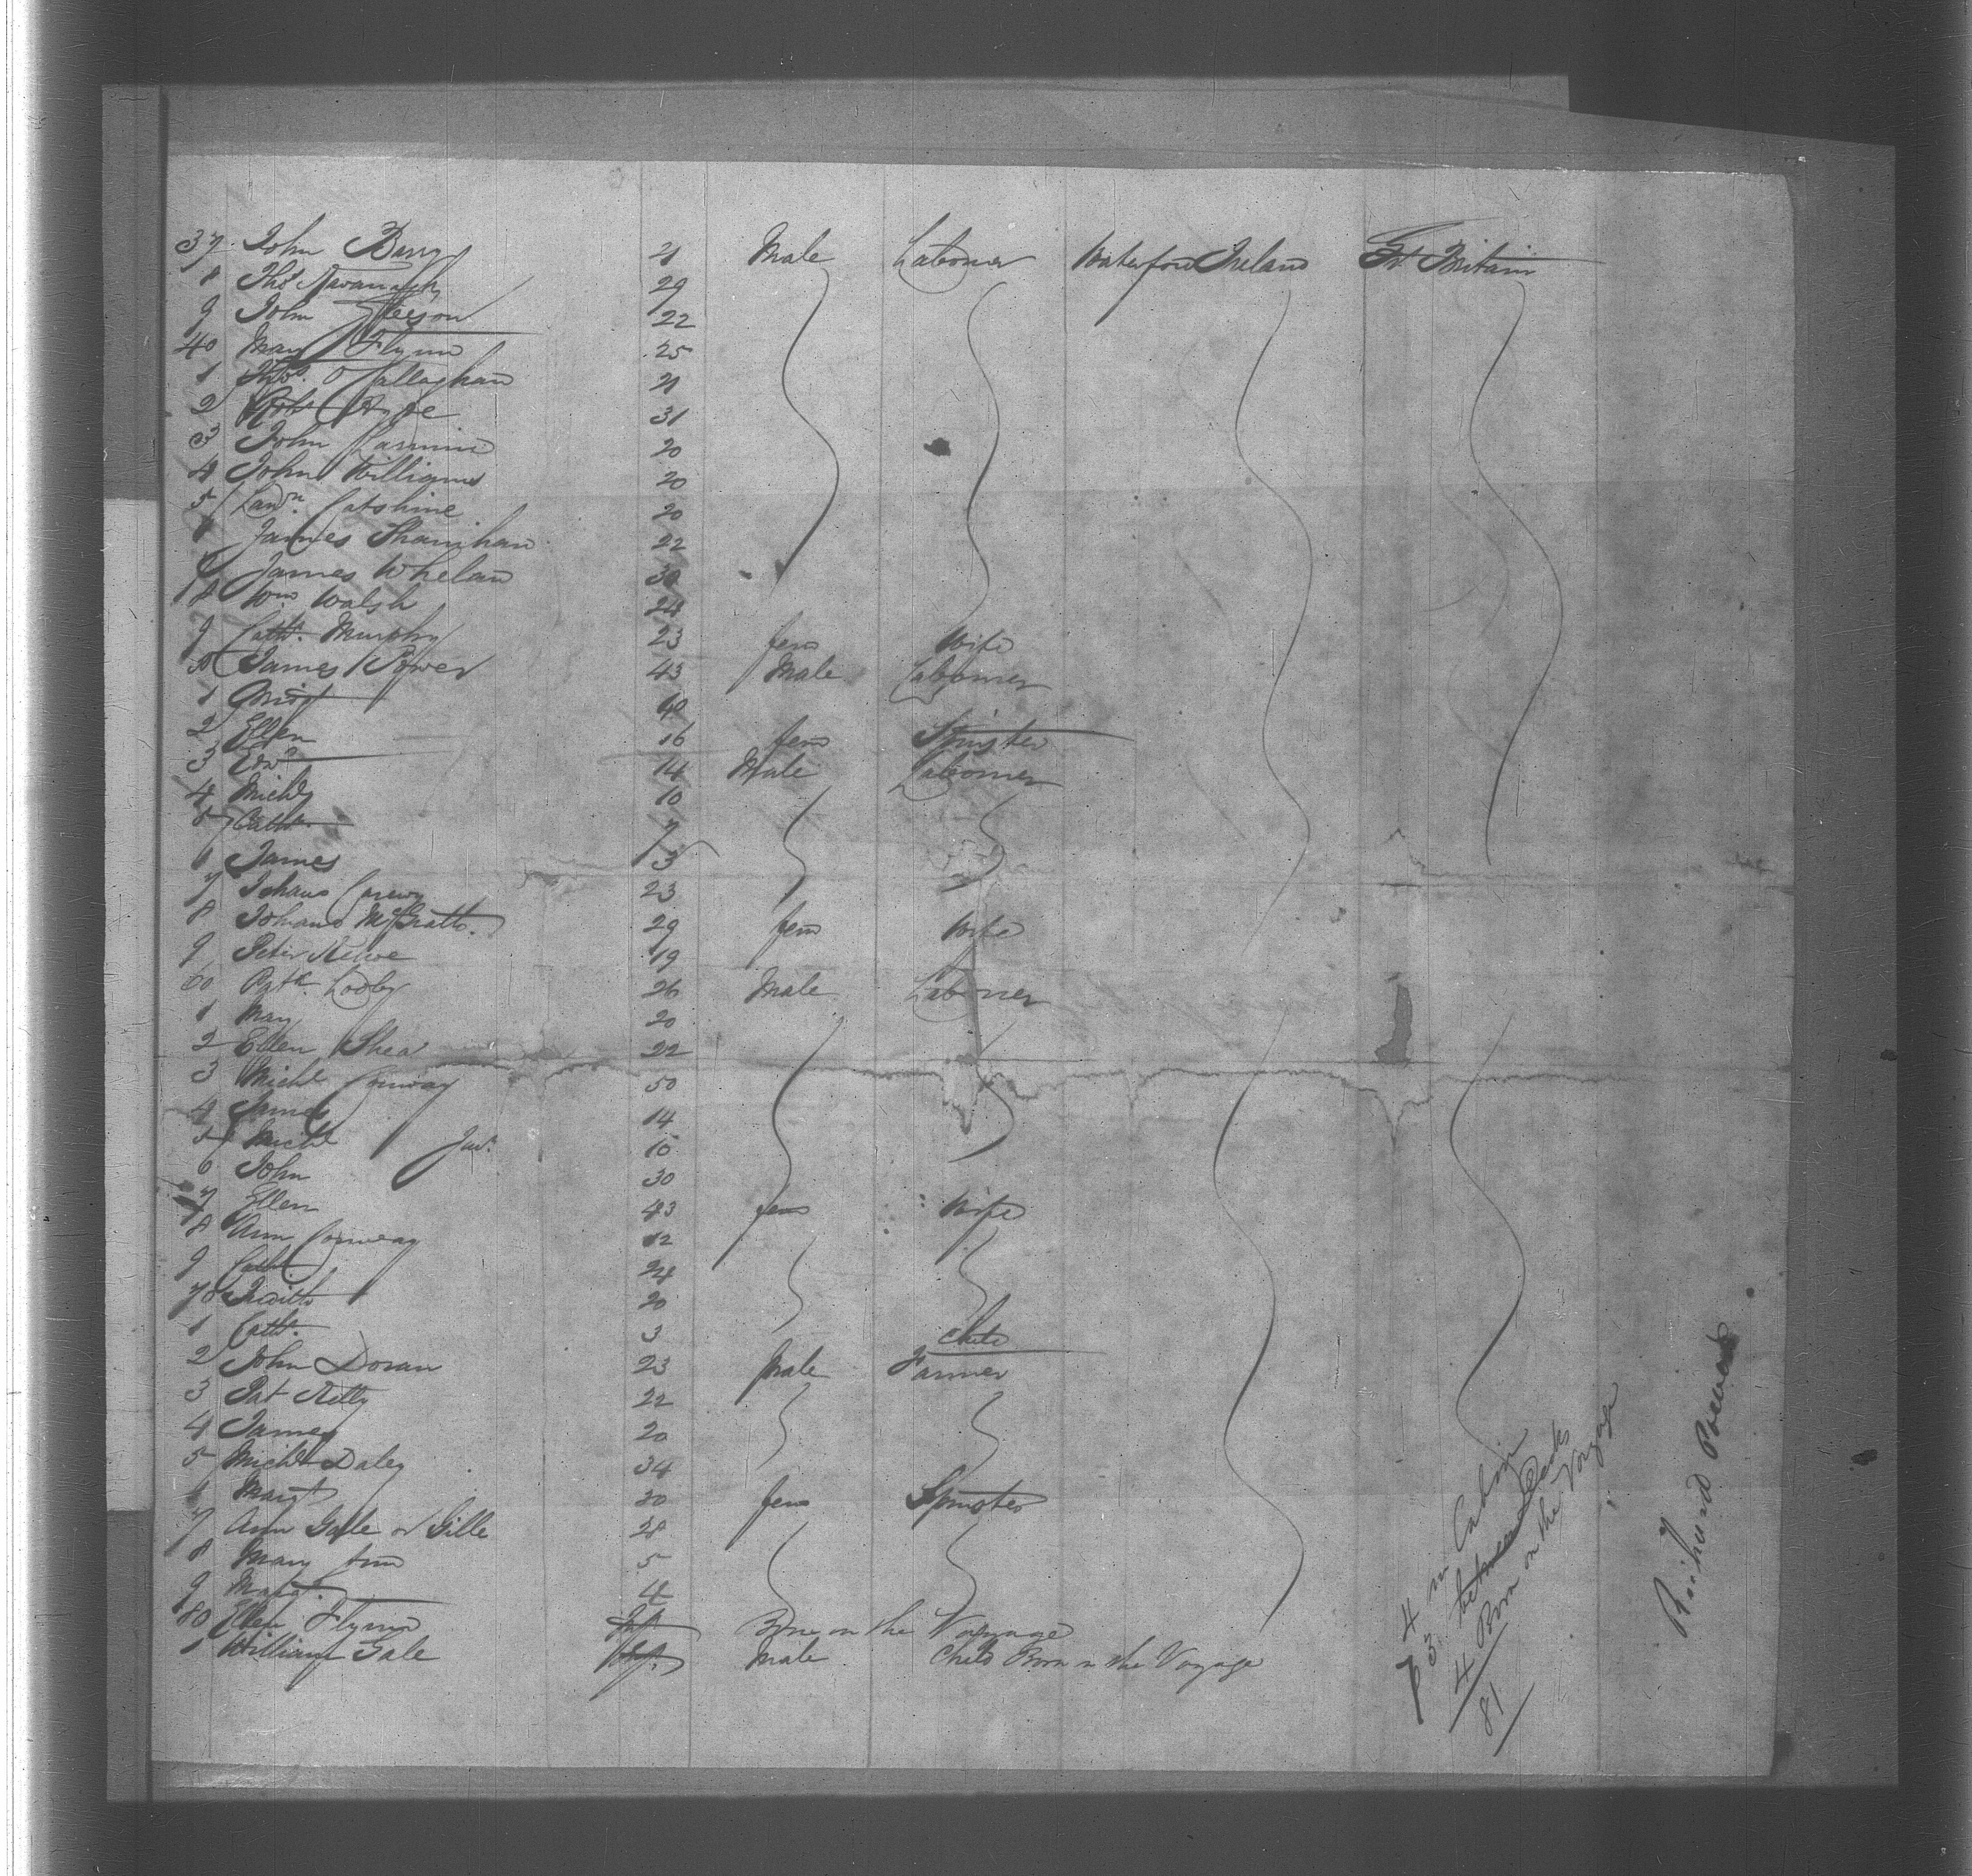 37 John Barry 21 Male Labourer Waterford Ireland Gt Britain
8 Thos Kavanagh 29
9 John Gleeson 22
40 Mary Flynn 25
1 Thos. O Callaghan 21
2 Robt 31
3 John 20
4 John Williams 20
5 Lawn. Catshine 20
6 James Shanihan 22
7 James Whelan 30
8 Wm Walsh 24
9 Cath. Murphy 23 fem Wife
50 James Power 43 Male Labourer
1 Margt 40
2 Ellen 16 fem Spinster
3 Edwd 14 Male Labourer
4 Michl 10
5 Cath. 7
6 James 3
7 Johana Carew 23
8 Johana McGrath. 29 fem Wife
9 Peter Kehoe 19
60 Patk. Looby 26 Male Labourer
1 Mary 20
2 Ellen Shea 22
3 Michl Conway 50
4 James 14
5 Michl Junr. 10
6 John 30
7 Ellen 43 fem Wife
8 Ann Conway 12
9 Cath 24
70 Judith 20
1 Cath. 3 Child
2 John Doran 23 Male Farmer
3 Pat Kelly 22
4 James 20
5 Michl Daley 34
6 Margt 20 fem Spinster
7 Ann Gale or Gille 28
8 Mary Ann 5
9 Margt. 4
80 Ellen Flynn Inf. Borne on the Voyage
1 William Gale Inf. Male Child Born on the Voyage
4 in Cabin
73 between Decks
4 Born on the Voyage
81
Richard